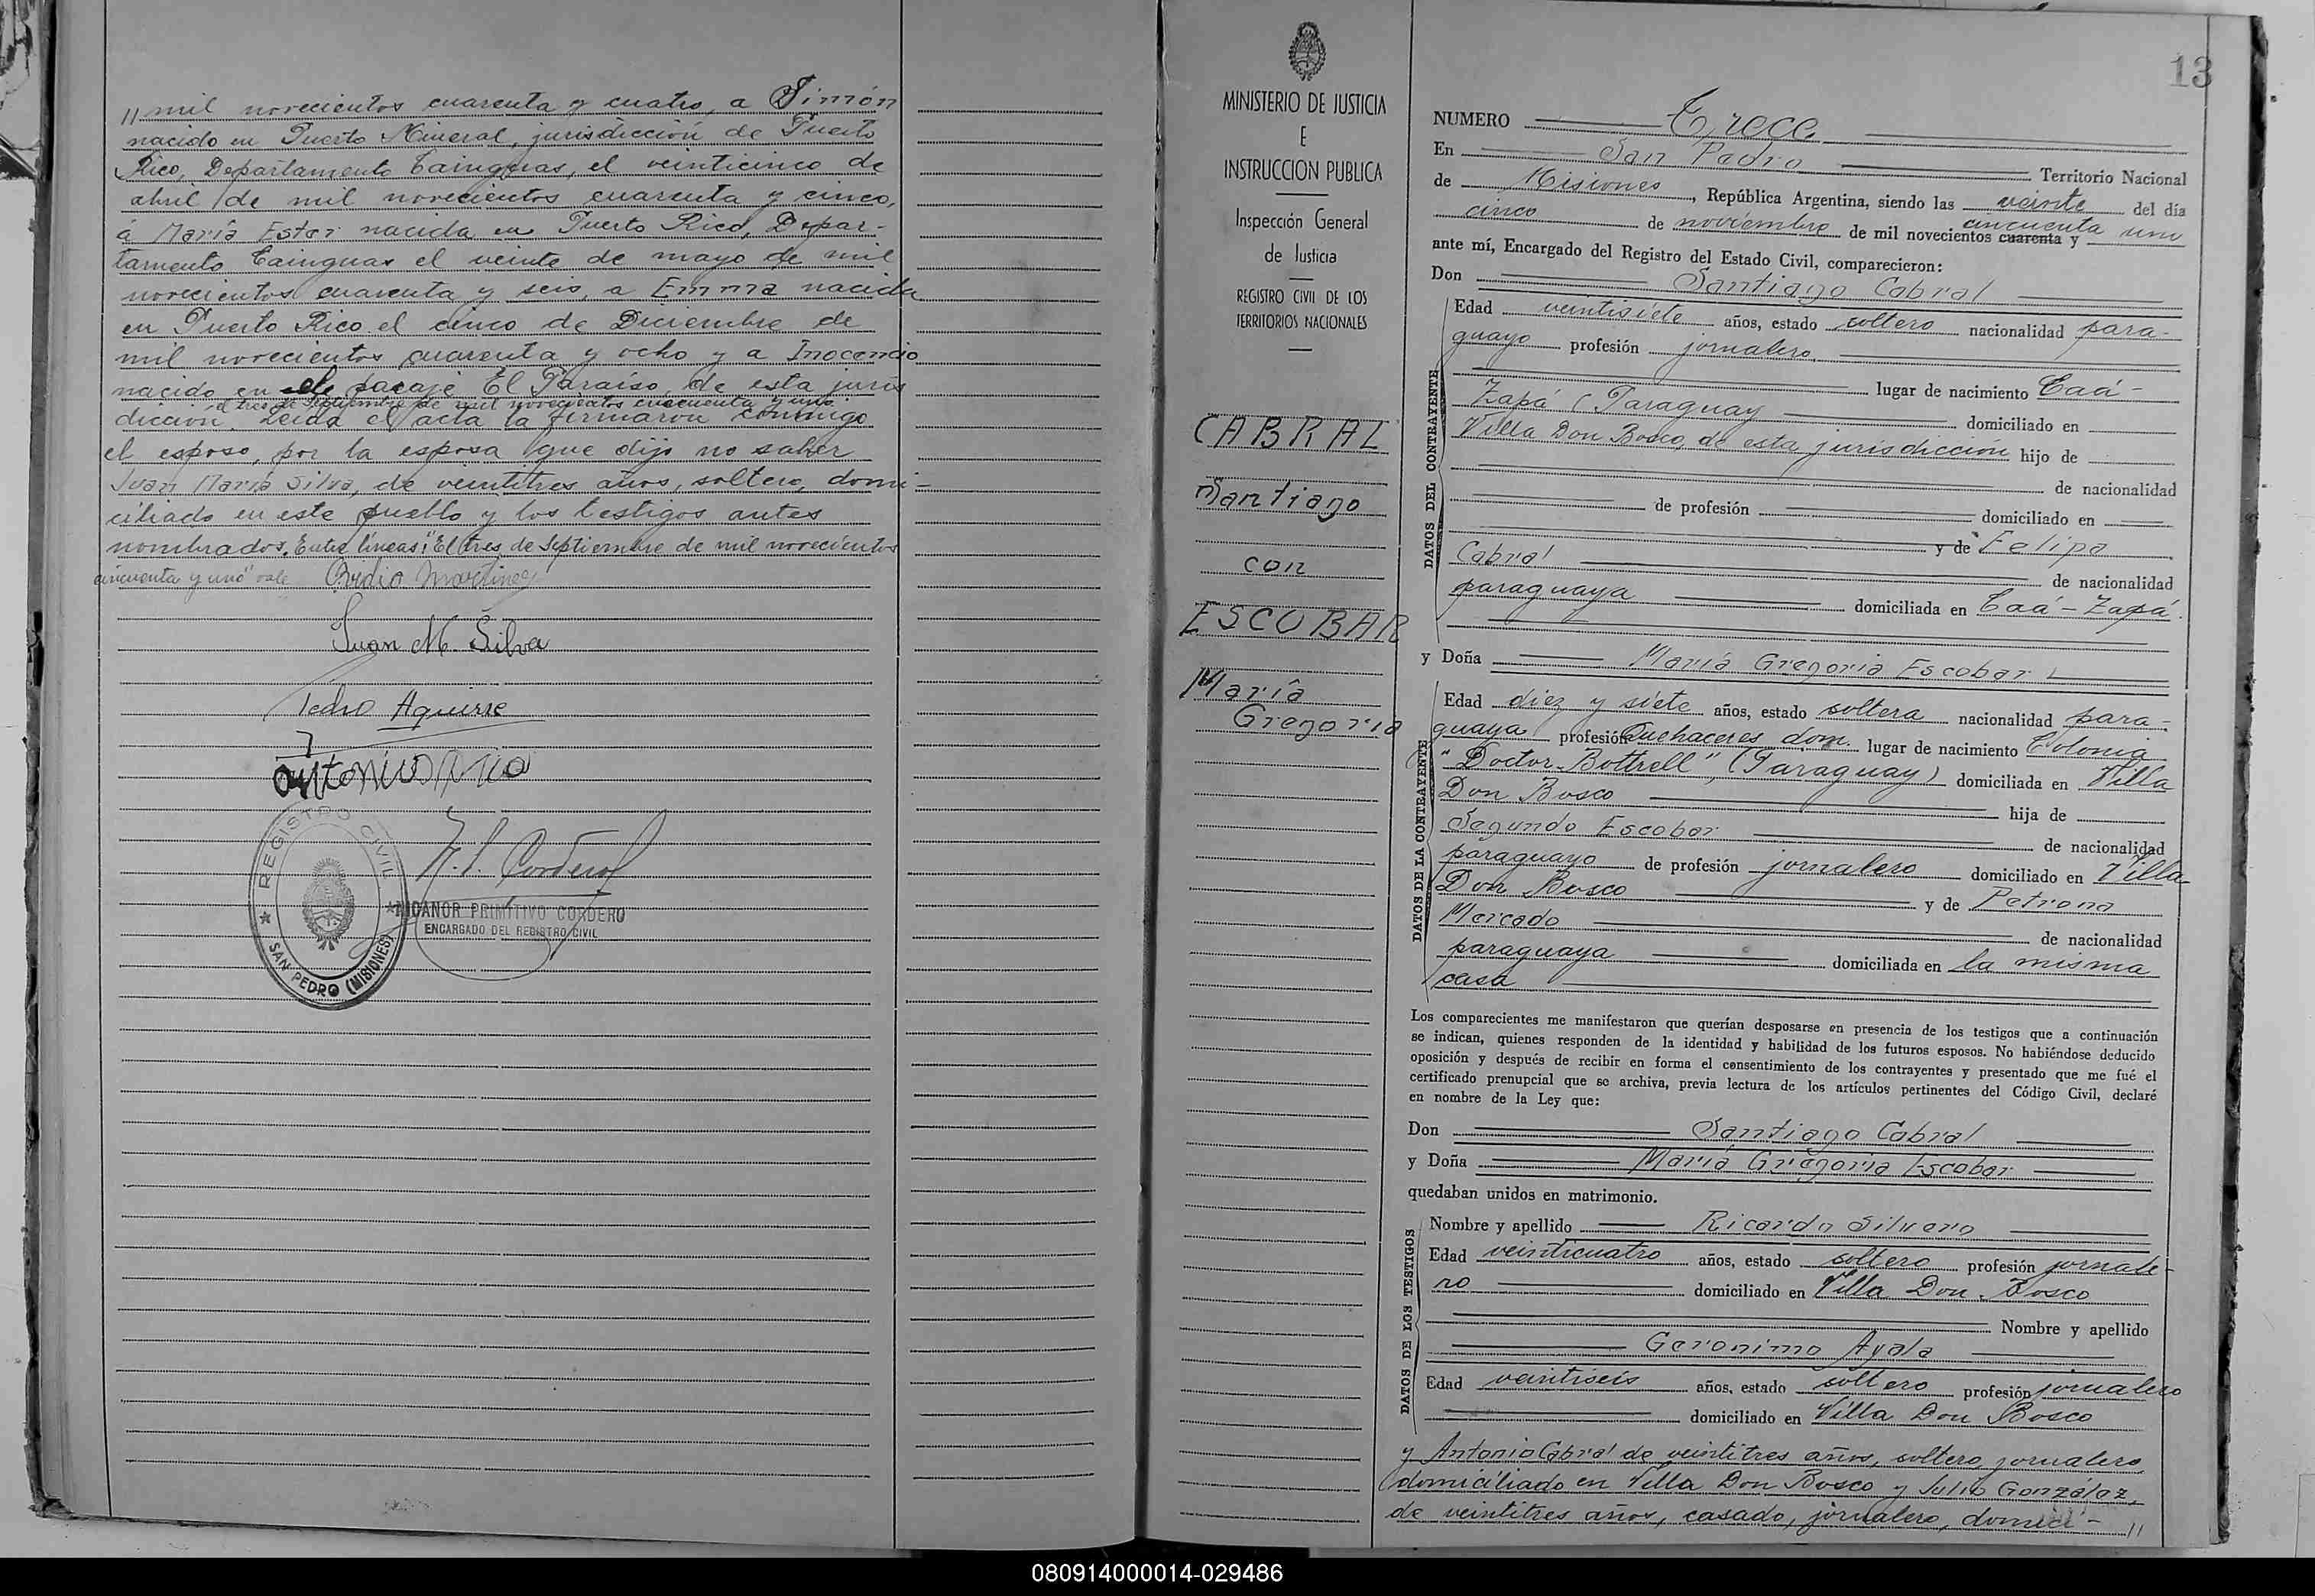 // mil novecientos cuarenta y cuatro, a Simón
nacido en Puerto Mineral, jurisdicción de Puerto
Rico, Departamento Cainguas, el veinticinco de
abril de mil novecientos cuarenta y cinco,
á María Ester nacida en Puerto Rico, Depar-
tamento Cainguas el veinte de mayo de mil
novecientos cuarenta y seis, a Emma nacida
en Puerto Rico el cinco de Diciembre de
mil novecientos cuarenta y ocho y a Inocencio
nacido en el paraje El Paraíso, de esta juris
el tres de Septiembre de mil novecientos cincuenta y uno
dicción. Leída el acta la firmaron conmigo
el esposo, por la esposa que dijo no saber
Juan María Silva, de veintitres años, soltero, domi-
ciliado en este pueblo y los testigos antes
nombrados. Entre líneas: "El tres de Septiembre de mil novecientos
cincuenta y uno" vale. Martinez
Juan M. Silva
Pedro Aguirre
Antonio
REGISTRO CIVIL
SAN PEDRO (MISIONES)
N. P. Cordero
NICANOR PRIMITIVO CORDERO
ENCARGADO DEL REGISTRO CIVIL
MINISTERIO DE JUSTICIA
E
INSTRUCCION PUBLICA
Inspección General
de Justicia
REGISTRO CIVIL DE LOS
TERRITORIOS NACIONALES
CABRAL
Santiago
con
ESCOBAR
María
Gregoria
13
NUMERO Trece
En San Pedro Territorio Nacional
de Misiones, República Argentina, siendo las veinte del día
cinco de noviembre de mil novecientos cuarenta y cincuenta uno
ante mí, Encargado del Registro del Estado Civil, comparecieron:
Don Santiago Cabral
DATOS DEL CONTRAYENTE
Edad veintisiete años, estado soltero nacionalidad para-
guayo profesión jornalero
lugar de nacimiento Caá-
Zapá (Paraguay domiciliado en
Villa Don Bosco, de esta jurisdicción hijo de
de nacionalidad
de profesión domiciliado en
y de Felipa
Cabral de nacionalidad
paraguaya domiciliada en Caá-Zapá
y Doña María Gregoria Escobar
DATOS DE LA CONTRAYENTE
Edad diez y siete años, estado soltera nacionalidad para-
guaya profesión Quehaceres dom. lugar de nacimiento Colonia
"Doctor Bottrell", (Paraguay) domiciliada en Villa
Don Bosco hija de
Segundo Escobar de nacionalidad
paraguayo de profesión jornalero domiciliado en Villa
Don Bosco y de Petrona
Mercado de nacionalidad
paraguaya domiciliada en la misma
casa
Los comparecientes me manifestaron que querían desposarse en presencia de los testigos que a continuación
se indican, quienes responden de la identidad y habilidad de los futuros esposos. No habiéndose deducido
oposición y después de recibir en forma el consentimiento de los contrayentes y presentado que me fué el
certificado prenupcial que se archiva, previa lectura de los artículos pertinentes del Código Civil, declaré
en nombre de la Ley que:
Don Santiago Cabral
y Doña María Gregoria Escobar
quedaban unidos en matrimonio.
DATOS DE LOS TESTIGOS
Nombre y apellido Ricardo Silvero
Edad veinticuatro años, estado soltero profesión jornale-
ro domiciliado en Villa Don Bosco
Nombre y apellido
Geronimo Ayala
Edad veintiseis años, estado soltero profesión jornalero
domiciliado en Villa Don Bosco
y Antonio Cabral de veintitres años, soltero, jornalero,
domiciliado en Villa Don Bosco y Julio González,
de veintitres años, casado, jornalero, domici- //
080914000014-029486